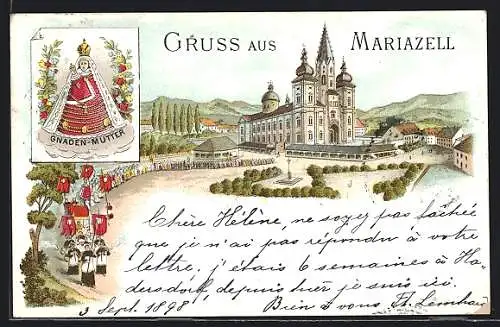 GRUSS AUS MARIAZELL
GNADEN-MUTTER
Chère Hélène, ne soyez pas fachée
que je n'ai pas répondu à votre
lettre, j'étais 6 semaines à Ha-
dersdorf, depuis hier je suis ici.
3 Sept. 1898 Bien à vous